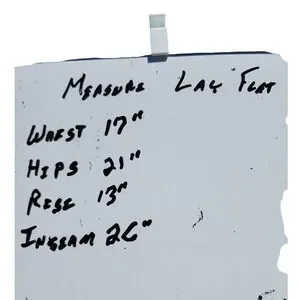 MEASURE LAY FLAT
WAEST 17"
HIPS 21"
RISE 13"
INSEAM 26"